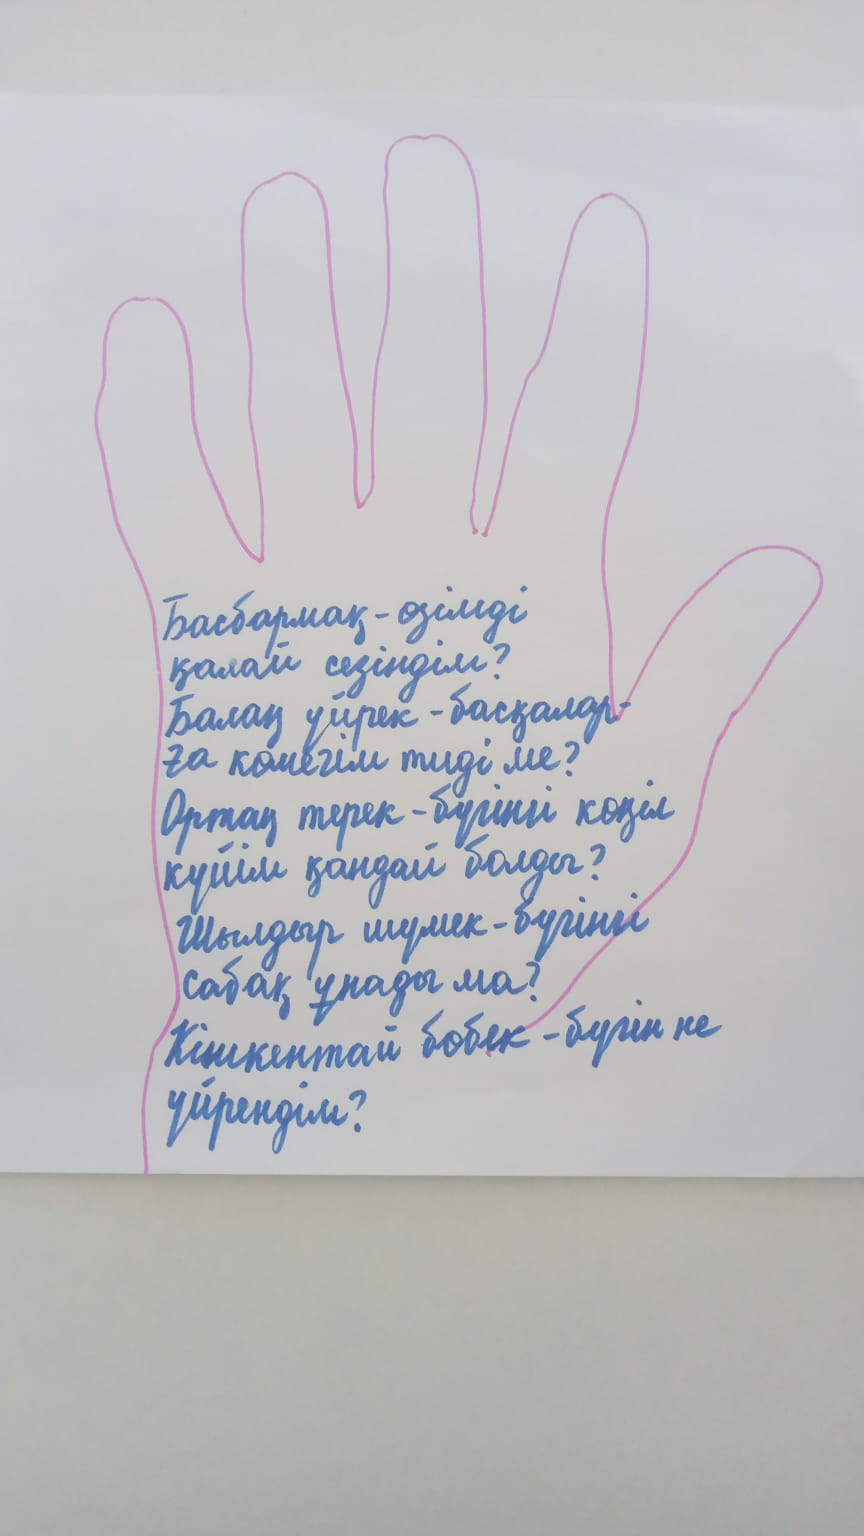 Басбармақ - өзімді
қалай сезіндім?
Балаң үйрек - басқалар-
ға көмегім тиді ме?
Ортаң терек - бүгінгі көңіл
күйім қандай болды?
Шылдыр шүмек - бүгінгі
сабақ ұнады ма?
Кішкентай бөбек - бүгін не
үйрендім?